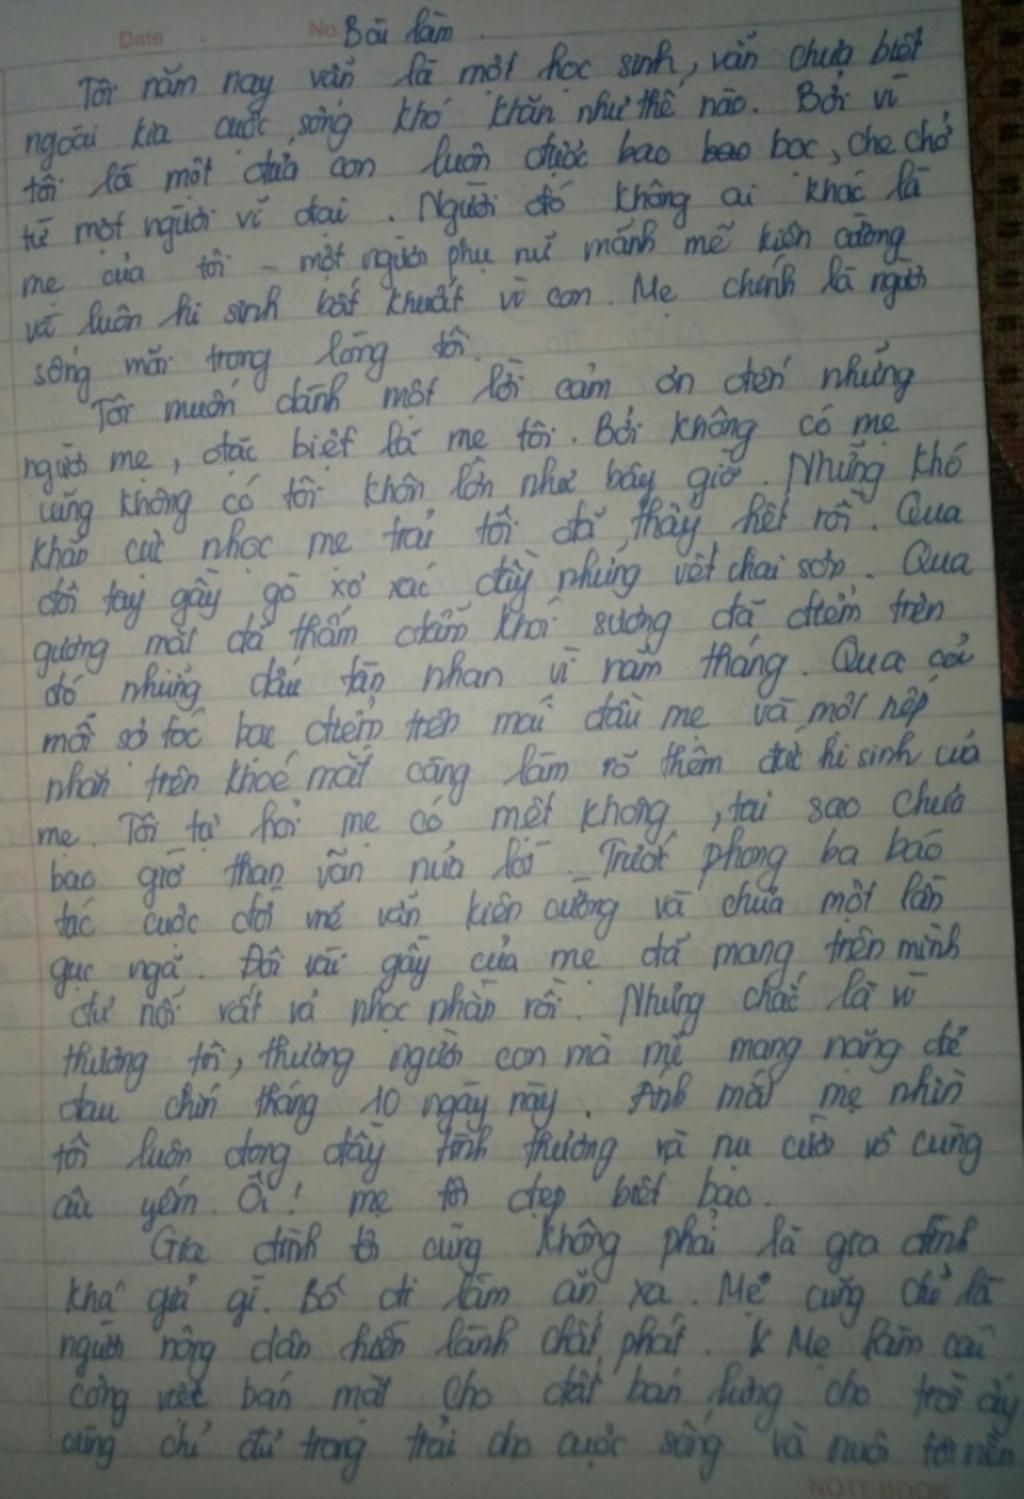 Date No.
Bài làm.
Tôi năm nay vẫn là một học sinh, vẫn chưa biết
ngoài kia cuộc sống khó khăn như thế nào. Bởi vì
tôi là một đứa con luôn được bao bao bọc, che chở
từ một người vĩ đại. Người đó không ai khác là
mẹ của tôi - một người phụ nữ mạnh mẽ kiên cường
và luôn hi sinh bất khuất vì con. Mẹ chính là người
sống mãi trong lòng tôi.
Tôi muốn dành một lời cảm ơn đến những
người mẹ, đặc biệt là mẹ tôi. Bởi không có mẹ
cũng không có tôi khôn lớn như bây giờ. Những khó
khăn cực nhọc mẹ trải tôi đã thấy hết rồi. Qua
đôi tay gầy gò xơ xác đầy những vết chai sờn. Qua
gương mặt đã thấm đẫm khói sương đã điểm trên
đó những dấu tàn nhan vì năm tháng. Qua cả
mỗi sợ tóc bạc điểm trên mái đầu mẹ và mỗi nếp
nhăn trên khoé mắt càng làm rõ thêm đức hi sinh của
mẹ. Tôi tự hỏi mẹ có mệt không, tại sao chưa
bao giờ than vãn nửa lời. Trước phong ba bão
tác cuộc đời mẹ vẫn kiên cường và chưa một lần
gục ngã. Đôi vai gầy của mẹ đã mang trên mình
đủ nỗi vất vả nhọc nhằn rồi. Nhưng chắc là vì
thương tôi, thương người con mà mẹ mang nặng đẻ
đau chín tháng 10 ngày này. Ánh mắt mẹ nhìn
tôi luôn đong đầy tình thương và nụ cười vô cùng
âu yếm. Ôi! mẹ tôi đẹp biết bao.
Gia đình tôi cũng không phải là gia đình
khá giả gì. Bố đi làm ăn xa. Mẹ cũng chỉ là
người nông dân hiền lành chất phát. Mẹ làm cái
công việc bán mặt cho đất bán lưng cho trời ấy
cũng chỉ đủ trang trải cho cuộc sống và nuôi tôi nên
NOTEBOOK